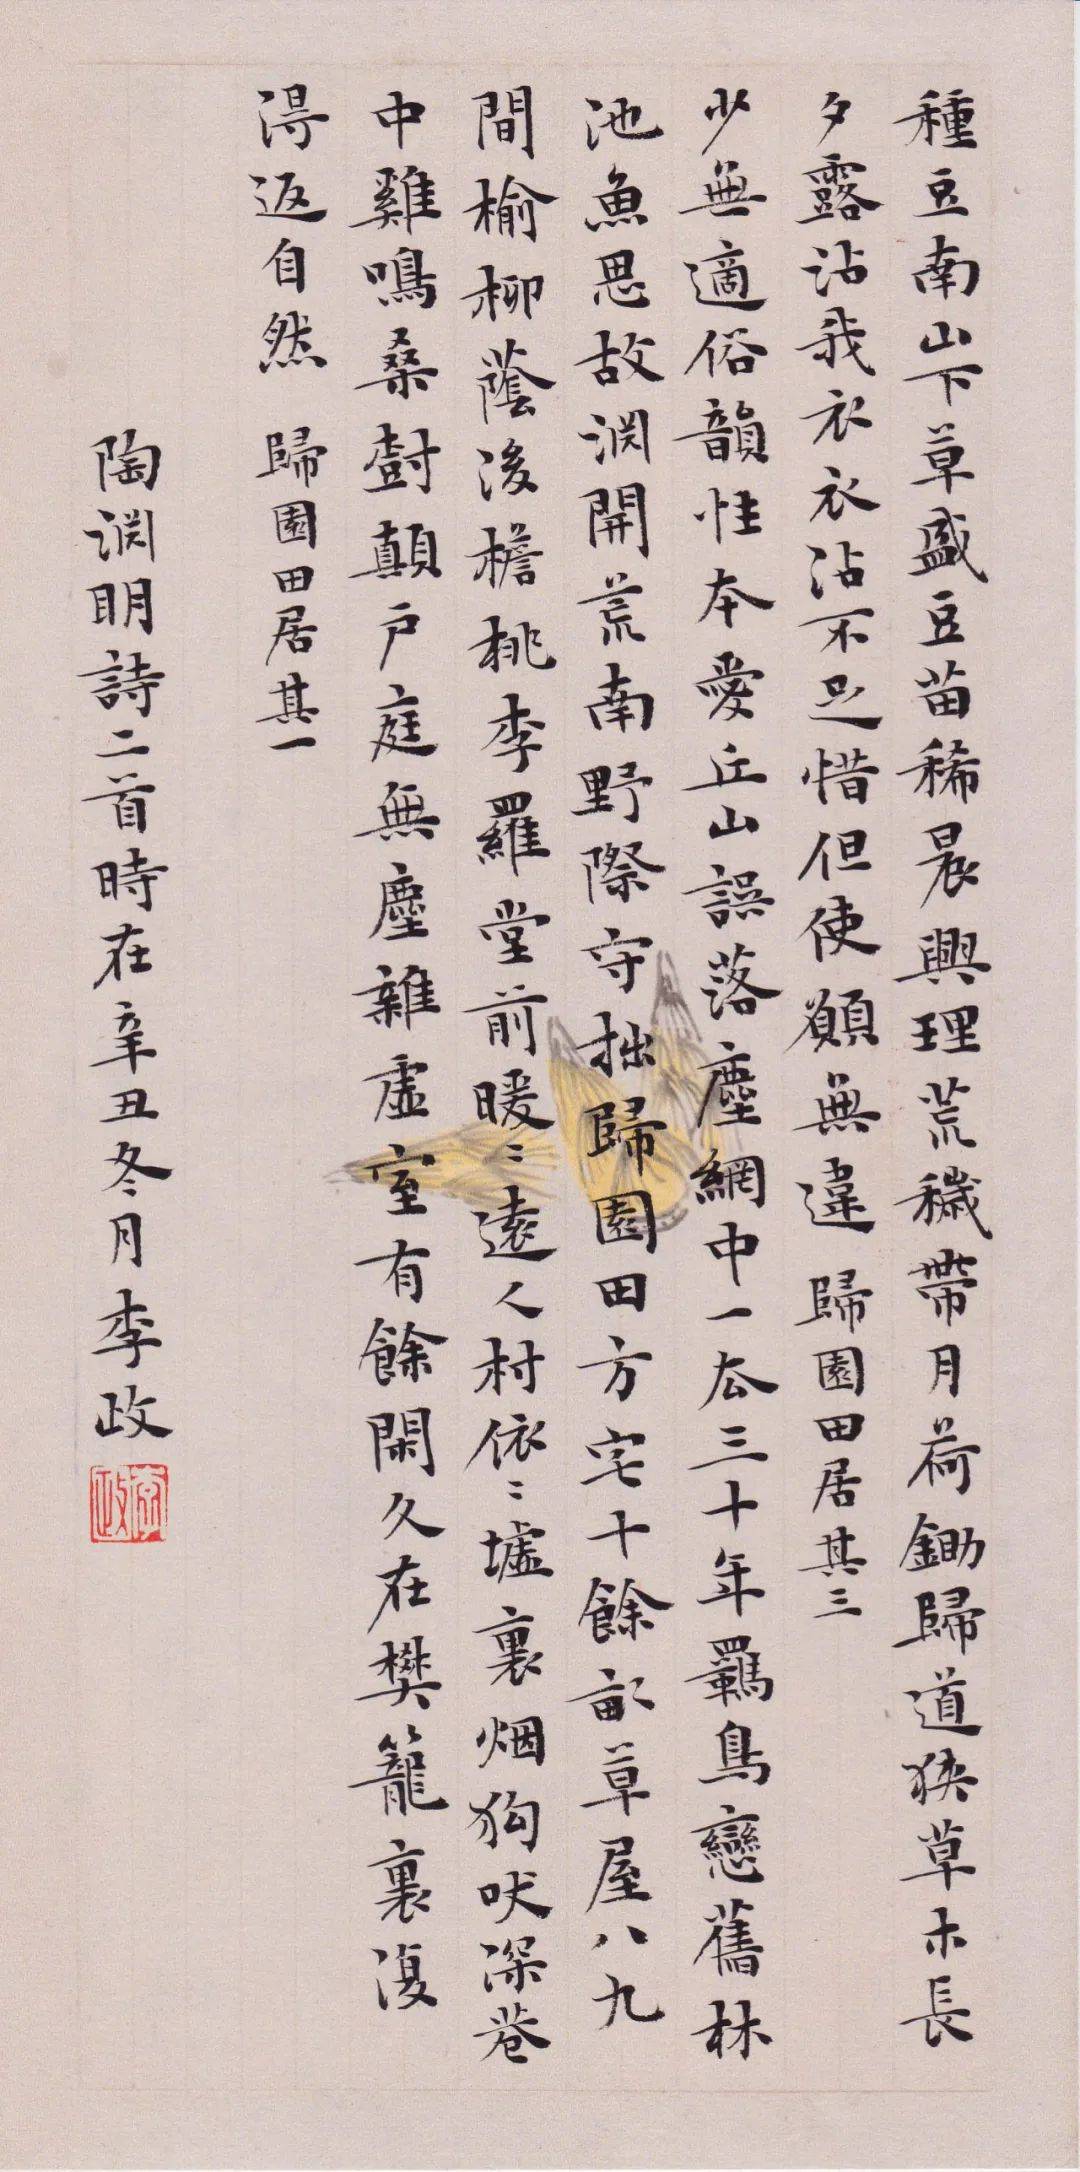 種豆南山下草盛豆苗稀晨興理荒穢帶月荷鋤歸道狹草木長
夕露沾我衣衣沾不足惜但使願無違 歸園田居其三
少無適俗韻性本愛丘山誤落塵網中一去三十年羈鳥戀舊林
池魚思故淵開荒南野際守拙歸園田方宅十餘畝草屋八九
間榆柳蔭後檐桃李羅堂前暖〻遠人村依〻墟裏烟狗吠深巷
中雞鳴桑樹顛户庭無塵雜虛室有餘閑久在樊籠裏復
得返自然 歸園田居其一
陶淵明詩二首時在辛丑冬月李政
李政